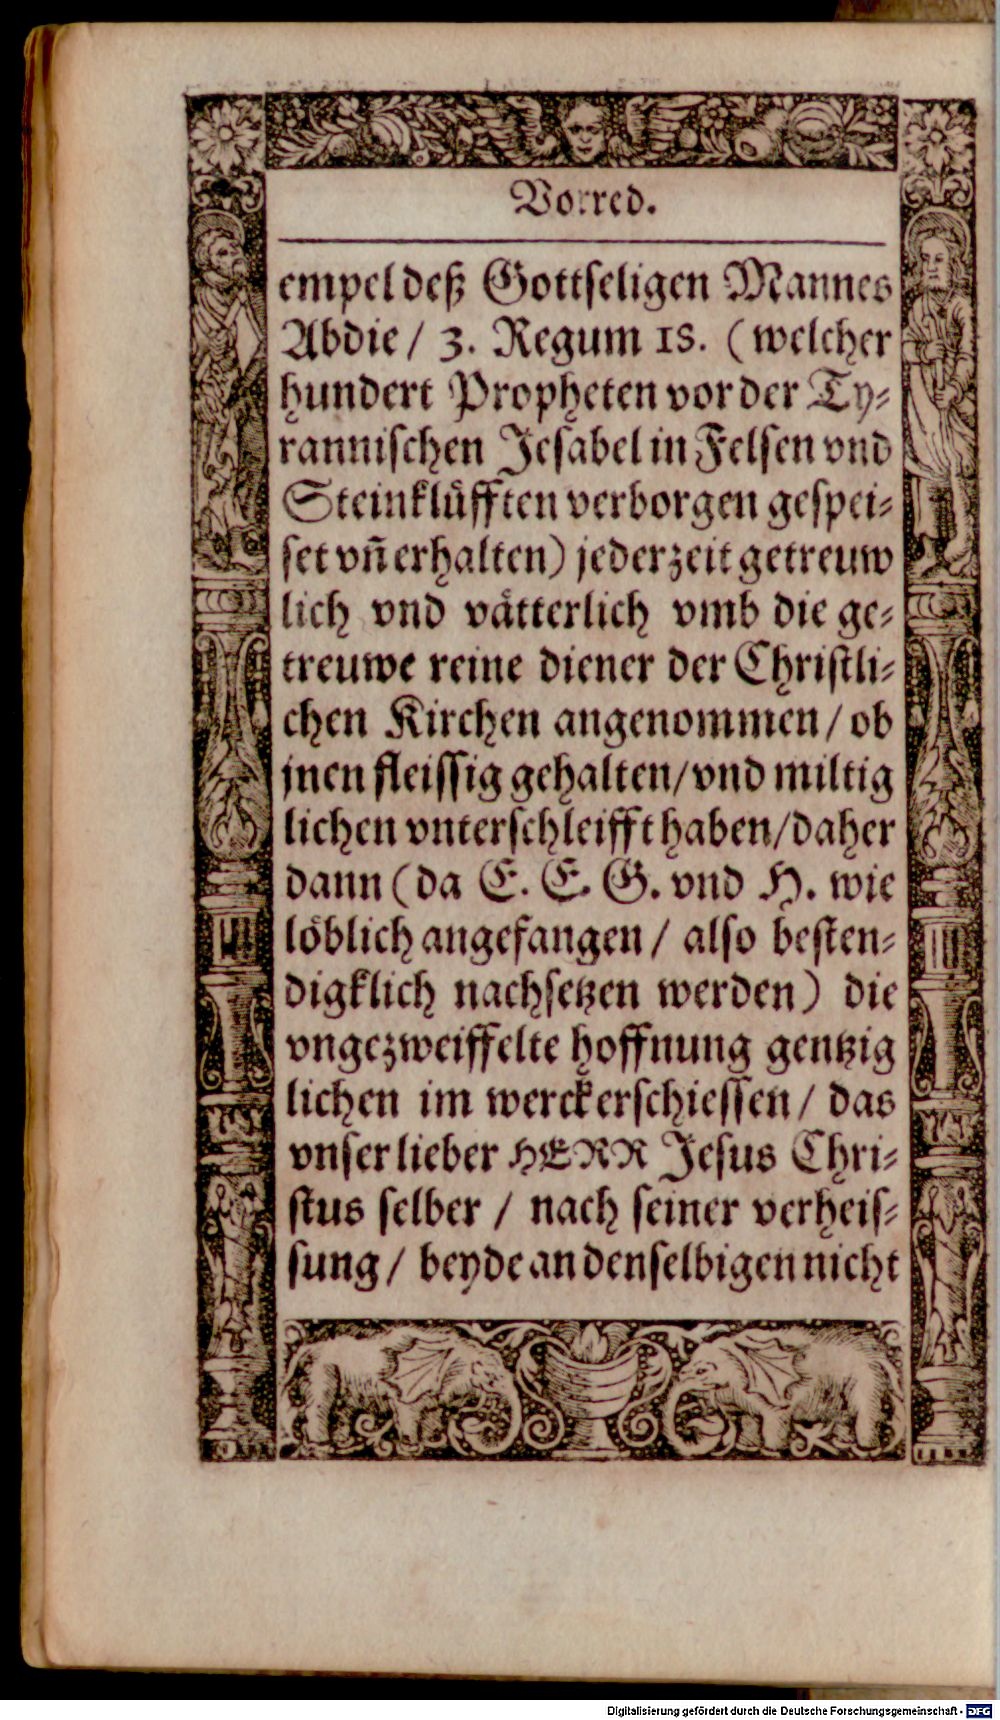 Vorred.
empel deß Gottseligen Mannes
Abdie / 3. Regum 18. (welcher
hundert Propheten vor der Ty⸗
rannischen Jesabel in Felsen vnd
Steinklüfften verborgen gespei⸗
set vñ erhalten) jederzeit getreuw
lich vnd vätterlich vmb die ge⸗
treuwe reine diener der Christli⸗
chen Kirchen angenommen / ob
jnen fleissig gehalten / vnd miltig
lichen vnterschleifft haben / daher
dann (da E. E. G. vnd H. wie
löblich angefangen / also besten⸗
digklich nachsetzen werden) die
vngezweiffelte hoffnung gentzig
lichen im werck erschiessen / das
vnser lieber HERR Jesus Chri⸗
stus selber / nach seiner verheis⸗
sung / beyde an denselbigen nicht
Digitalisierung gefördert durch die Deutsche Forschungsgemeinschaft - DFG